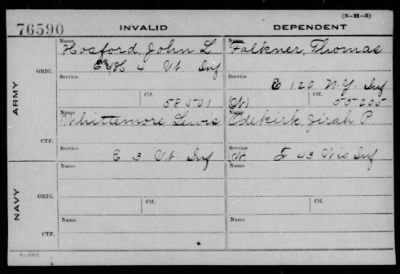 (3-H-3)
76590 INVALID DEPENDENT
Name Hosford, John L. Name Falkner, Thomas
ORIG. Service E & H 5 Vt. Inf Service E 120 N.Y. Inf
Ctf. 58501 Ctf. 55225
ARMY
Name Whittemore Lewis Name Odekirk, Jirah P.
CTF. Service E 3 Vt. Inf Service F 43 Wis Inf
Name Name
ORIG. Service Service
Ctf. Ctf.
NAVY
Name Name
CTF. Service Service